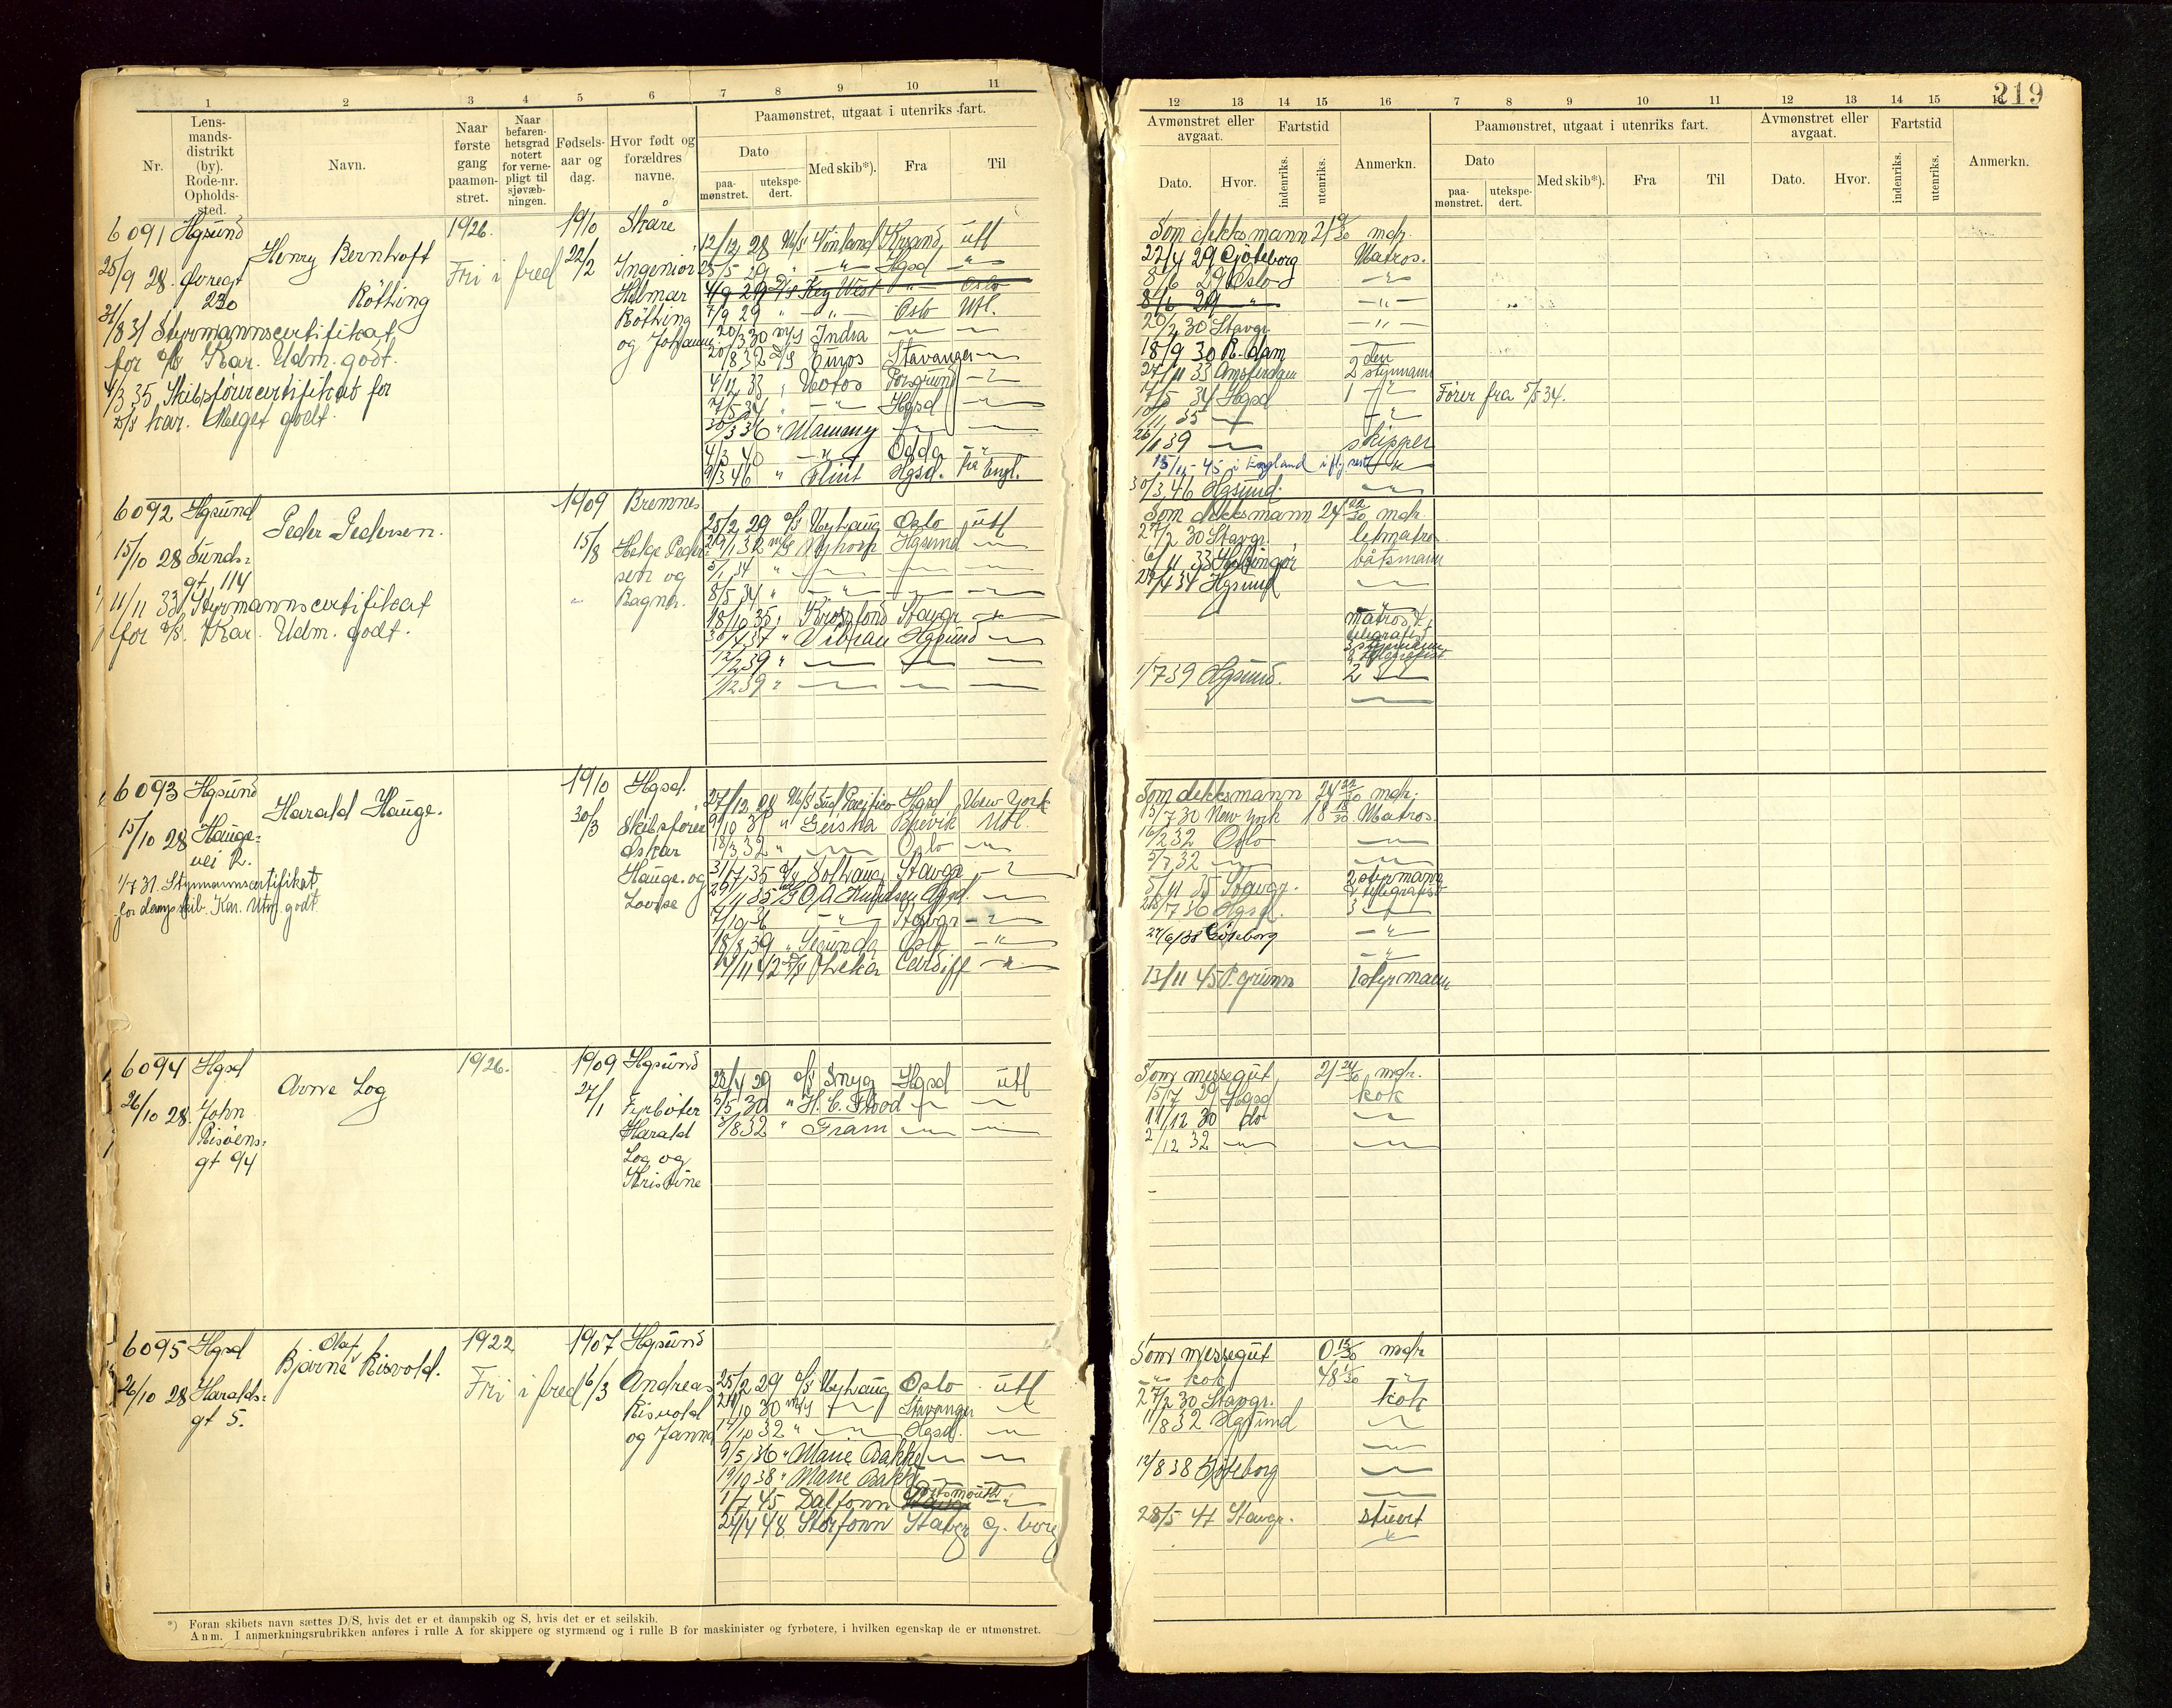 219
1 2 3 4 5 6 7 8 9 10 11
Nr.
Lens-
mands-
distrikt
(by).
Rode-nr.
Opholds-
sted.
Navn.
Naar
første
gang
paamøn-
stret.
Naar
befaren-
hetsgrad
notert
for verne-
pligt til
sjøvæb-
ningen.
Fødsels-
aar og
dag.
Hvor født og
forældres
navne.
Paamønstret, utgaat i utenriks fart.
Dato
paa-
mønstret.
utekspe-
dert.
Med skib*).
Fra
Til
12 13 14 15 16 7 8 9 10 11 12 13 14 15
Avmønstret eller
avgaat.
Dato.
Hvor.
Fartstid
indenriks.
utenriks.
Anmerkn.
Paamønstret, utgaat i utenriks fart.
Dato
paa-
mønstret.
utekspe-
dert.
Med skib*).
Fra
Til
Avmønstret eller
avgaat.
Dato.
Hvor.
Fartstid
indenriks.
utenriks.
Anmerkn.
6091 Hgsund 1926. 1910 Skåre
Henry Bernhoft
25/9 28. Fri i fred 22/2 Ingeniør
230 Röthing Hilmar
Röthing
31/8 31 Styrmannscertifikat
for d/s Kar. Udm. godt.
4/3 35 Skibsførercertifikat for
d/s kar. Meget godt.
12/12 28 M/S Vinland Krsand utl
25/5 29 " —"— Hgsd —"—
4/9 29 D/S Key West —"— Oslo
7/9 29 " —"— Oslo Utl.
20/3 30 M/S India
20/8 32 D/S Stavanger
4/11 33 Porsgrund
7/5 34 " —"— Hgsd
30/3 36 "
4/3 40 —"— Odda
9/3 46 " Hgsd. fra Engl.
Som dekksmann 21 9/30 mdr.
22/4 29 Göteborg Matros.
8/6 29 Oslo —"—
8/6 29 " —"—
20/2 30 Stavgr. —"—
18/9 30 R.dam
27/11 33 Amsterdam 2den styrmann
7/5 34 Hgsd 1 —"— Fører fra 5/5 34.
skipper
15/11-45 i England
30/3 46 Hgsund.
6092 Hgsund 1909 Bremnes
Peder Pedersen.
15/10 28 Sunds- 15/8 Helge Peder-
gt. 114 sen og
Ragnh.
11/11 33 Styrmannscertifikat
for d/s. Kar. Udm. godt.
25/2 29 d/s Nyhaug Oslo utl
29/1 32 m/s Nyhorn Hgsund
5/1 34 "
8/5 34 "
18/10 35 Krossfonn Stavgr
30/4 37 " Vibran Hgsund
12/2 39 "
1/12 39 "
Som dekksmann 24 22/30 mdr.
27/2 30 Stavgr. letmatros
6/11 33 Helsingør båtsmann
24/4 34 Hgsund
matros &
telegrafist
3 styrmann
& telegrafist
1/7 39 Hgsund. 2
6093 Hgsund 1910 Hgsd.
Harald Hauge.
15/10 28 Hauge- 30/3 Skibsfører
vei 2. Oskar
Hauge og
Lovise
1/7 31. Styrmannscertifikat
for dampskib. Kar. Utm. godt.
27/12 28 M/S Sud Pacifico Hgsd New York
9/10 31 " Geisha Utl.
18/3 32 " Oslo
31/7 35 d/s Solhaug Stavgr
29/11 35 O. A. Knudsen Hgsd.
7/10 36 —"— Stavgr
18/8 39 " Segunda Oslo —"—
14/11 42 D/S Cardiff
Som dekksmann 24 22/30 mdr.
13/7 30 New York 18 18/30 Matros
16/2 32 Oslo
5/7 32
5/11 35 Stavgr. 2 styrmann
& telegrafist
28/7 36 Hgsd. 3
27/6/38 Göteborg —"—
13/11 45 P.grunn 1 styrmann
6094 Hgsd 1926. 1909 Hgsund
Arne Log
26/10 28. John 27/1 Fyrbøter
Risøens- Harald
gt 94 Log og
Kristine
23/4 29 d/s Snyg Hgsd utl
5/5 30 " H. C. Flood
5/8 32 " Fram
Som messegut 21 24/30 mdr.
15/7 29 Hgsd kok
11/12 30 do
2/12 32
6095 Hgsd 1922 1907 Hgsund
Olaf
Bjarne Risvold.
26/10 28 Haralds- Fri i fred 6/3 Andreas
gt 5. Risvold
og Janna
25/2 29 d/s Nyhaug Oslo utl
24/10 30 m/s Stavanger
14/10 32 " Hgsd.
9/5 36 " Marie Bakke
19/10 38 " Marie Bakke
1/7 45 Dalfonn Portsmouth
24/4 48 Storfonn Stavgr G. borg
Som messegut 0 13/30 mdr
—"— kok 48 1/30 —"—
27/2 30 Stavgr. kok
11/8 32 Hgsund
12/8 38 Göteborg
28/5 47 Stavgr. stuert
*) Foran skibets navn sættes D/S, hvis det er et dampskib og S, hvis det er et seilskib.
Anm. I anmerkningsrubrikken anføres i rulle A for skippere og styrmænd og i rulle B for maskinister og fyrbøtere, i hvilken egenskap de er utmønstret.